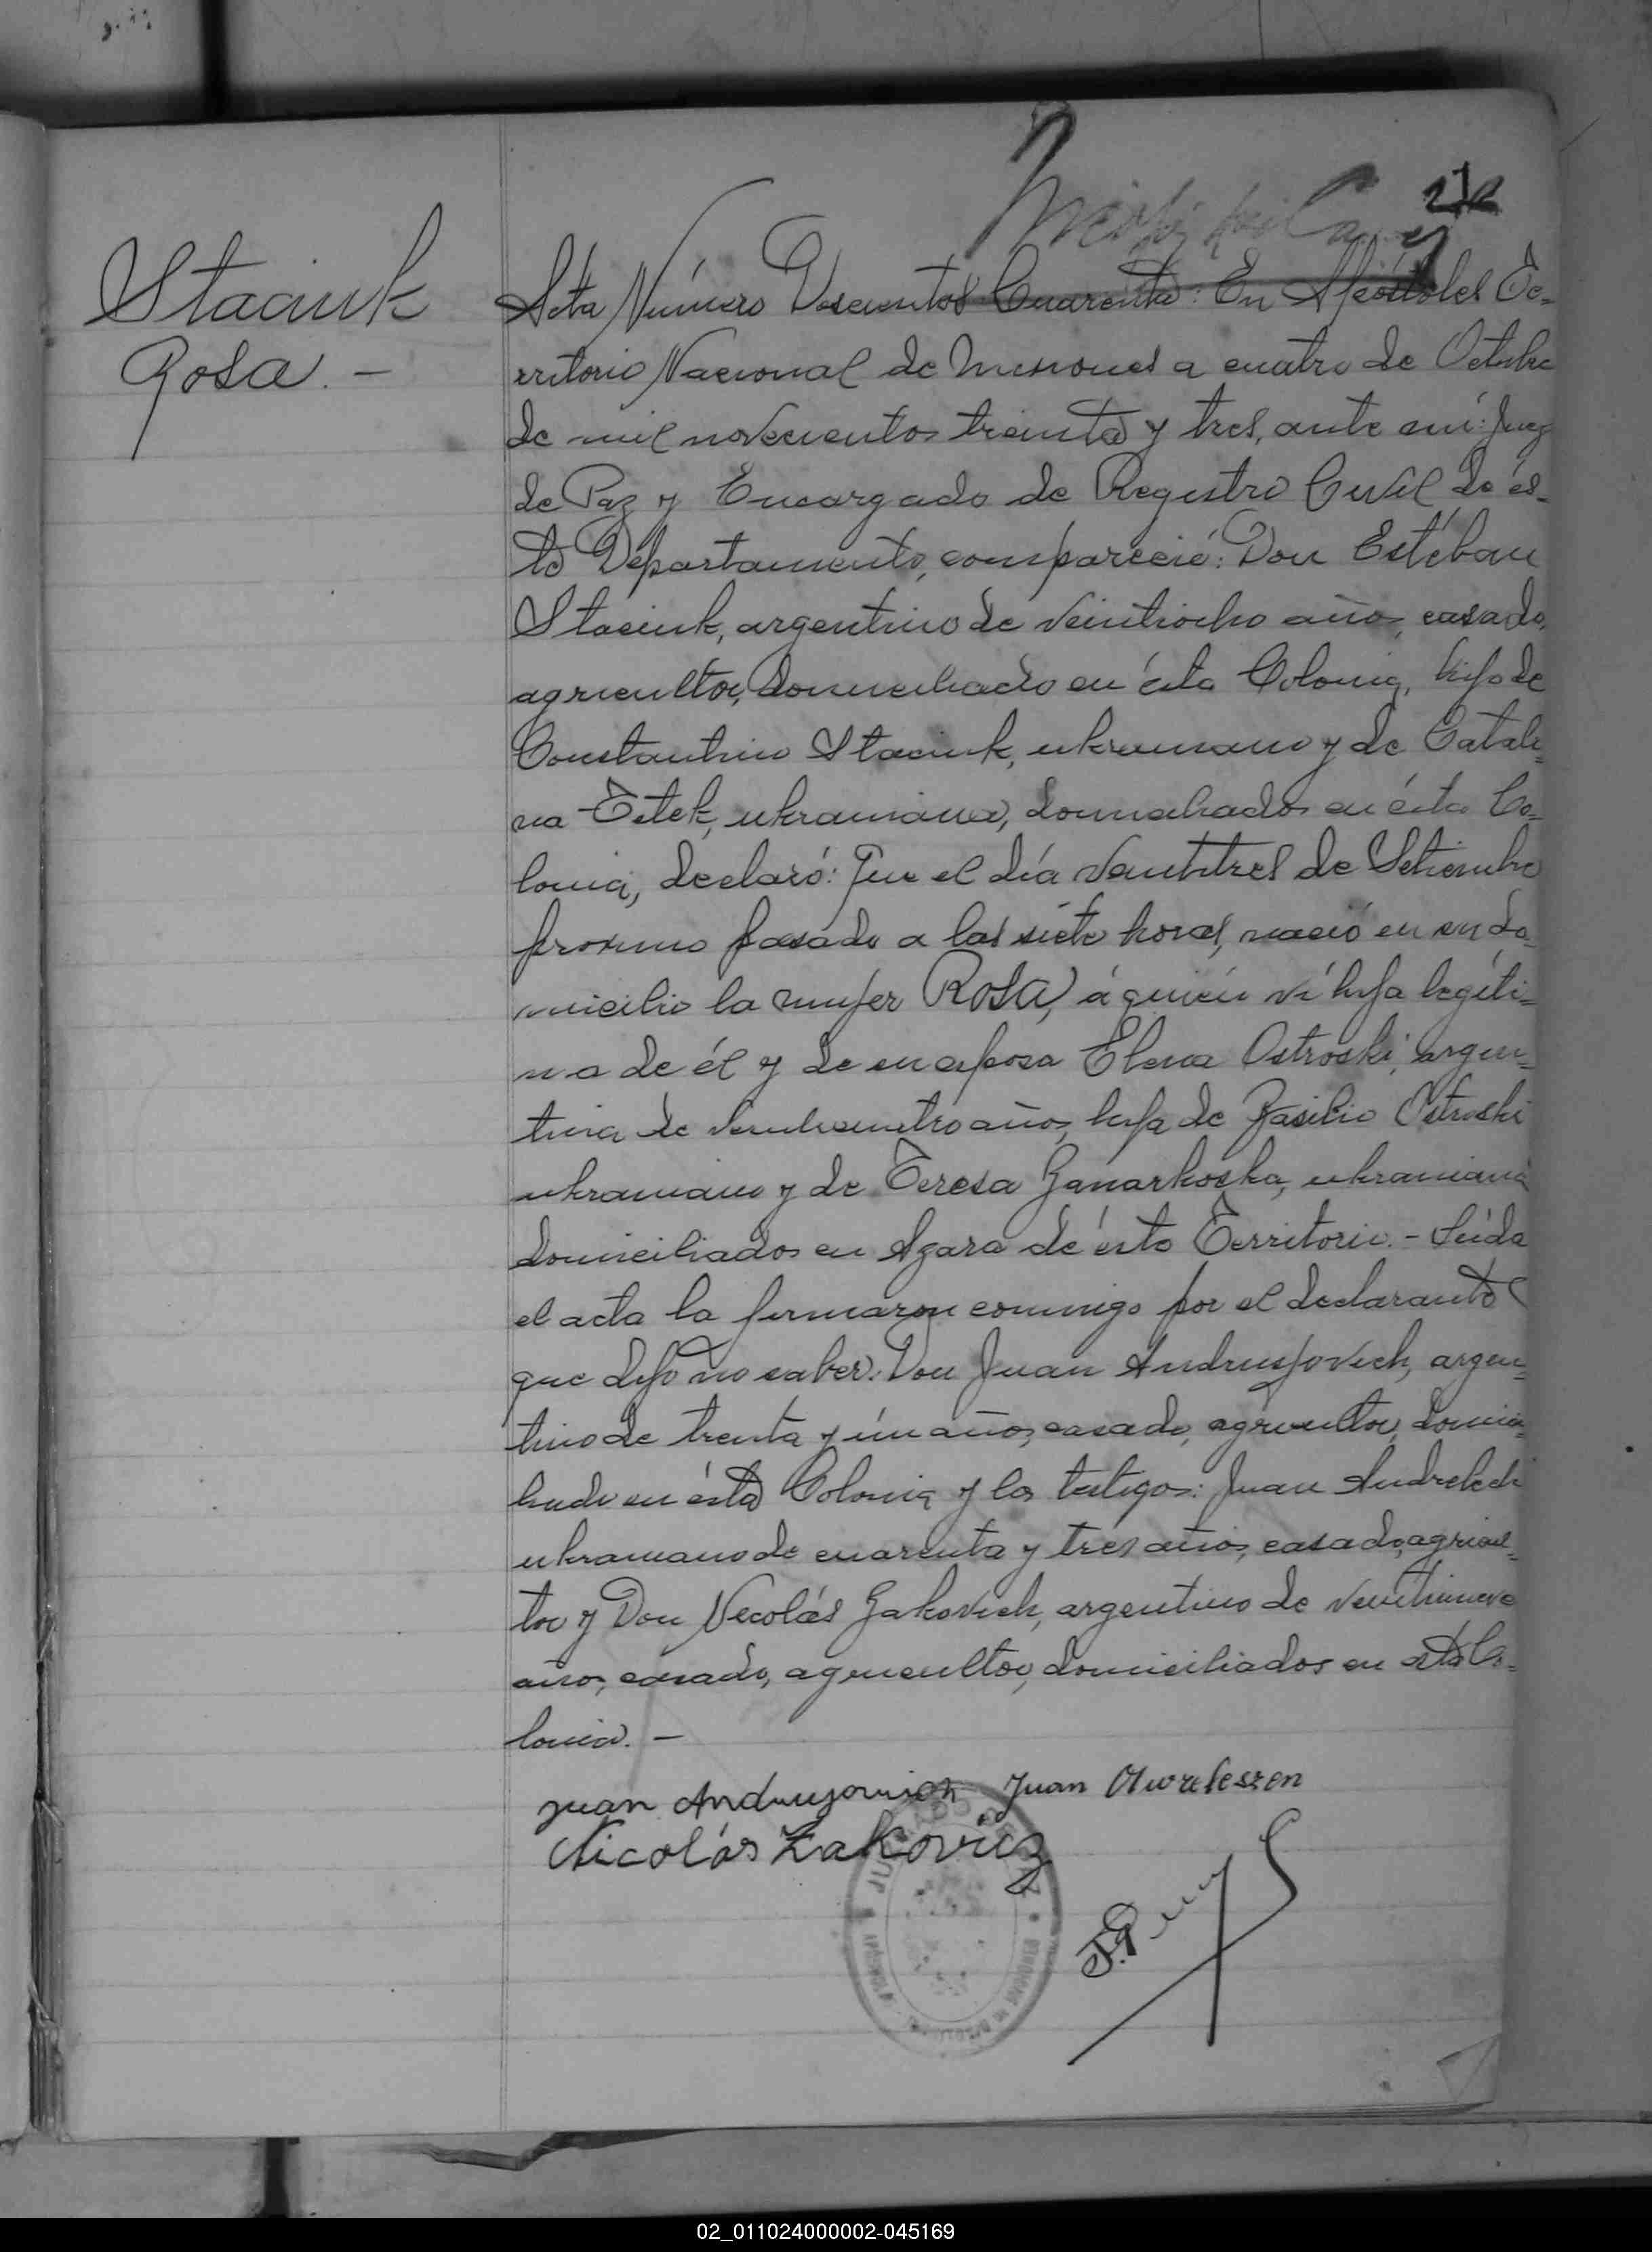 212
Staciuk
Rosa. -
Acta Número Doscientos Cuarenta: En Apóstoles Te=
rritorio Nacional de Misiones a cuatro de Octubre
de mil novecientos treinta y tres, ante mí: Juez
de Paz y Encargado de Registro Civil de és-
te Departamento, compareció: Don Estéban
Staciuk, argentino de veintiocho años, casado,
agricultor, domiciliado en ésta Colonia, hijo de
Constantino Staciuk, ukraniano y de Catali=
na Tetek, ukraniana, domiciliados en ésta Co=
lonia, declaró: Que el día veintitres de Setiembre
proximo pasado a las siete horas, nació en su do=
micilio la mujer Rosa, á quién ví hija legíti=
ma de él y de su esposa Elena Ostroski, argen=
tina de veinticuatro años, hija de Basilio Ostroski
ukraniano y de Teresa ukraniana
domiciliados en Azara de éste Territorio. - Leída
el acta la firmaron conmigo por el declarante
que dijo no saber: Don Juan Andrusjovich, argen=
tino de treinta y ún años, casado, agricultor, domici=
liado en ésta Colonia y los testigos: Juan
ukraniano de cuarenta y trés años, casado, agricul=
tor y Don Nicolás Zakovich, argentino de veintinueve
años, casado, agricultor, domiciliados en esta Co=
lonia. -
Juan Juan
Nicolás Zakovicz
02_011024000002-045169